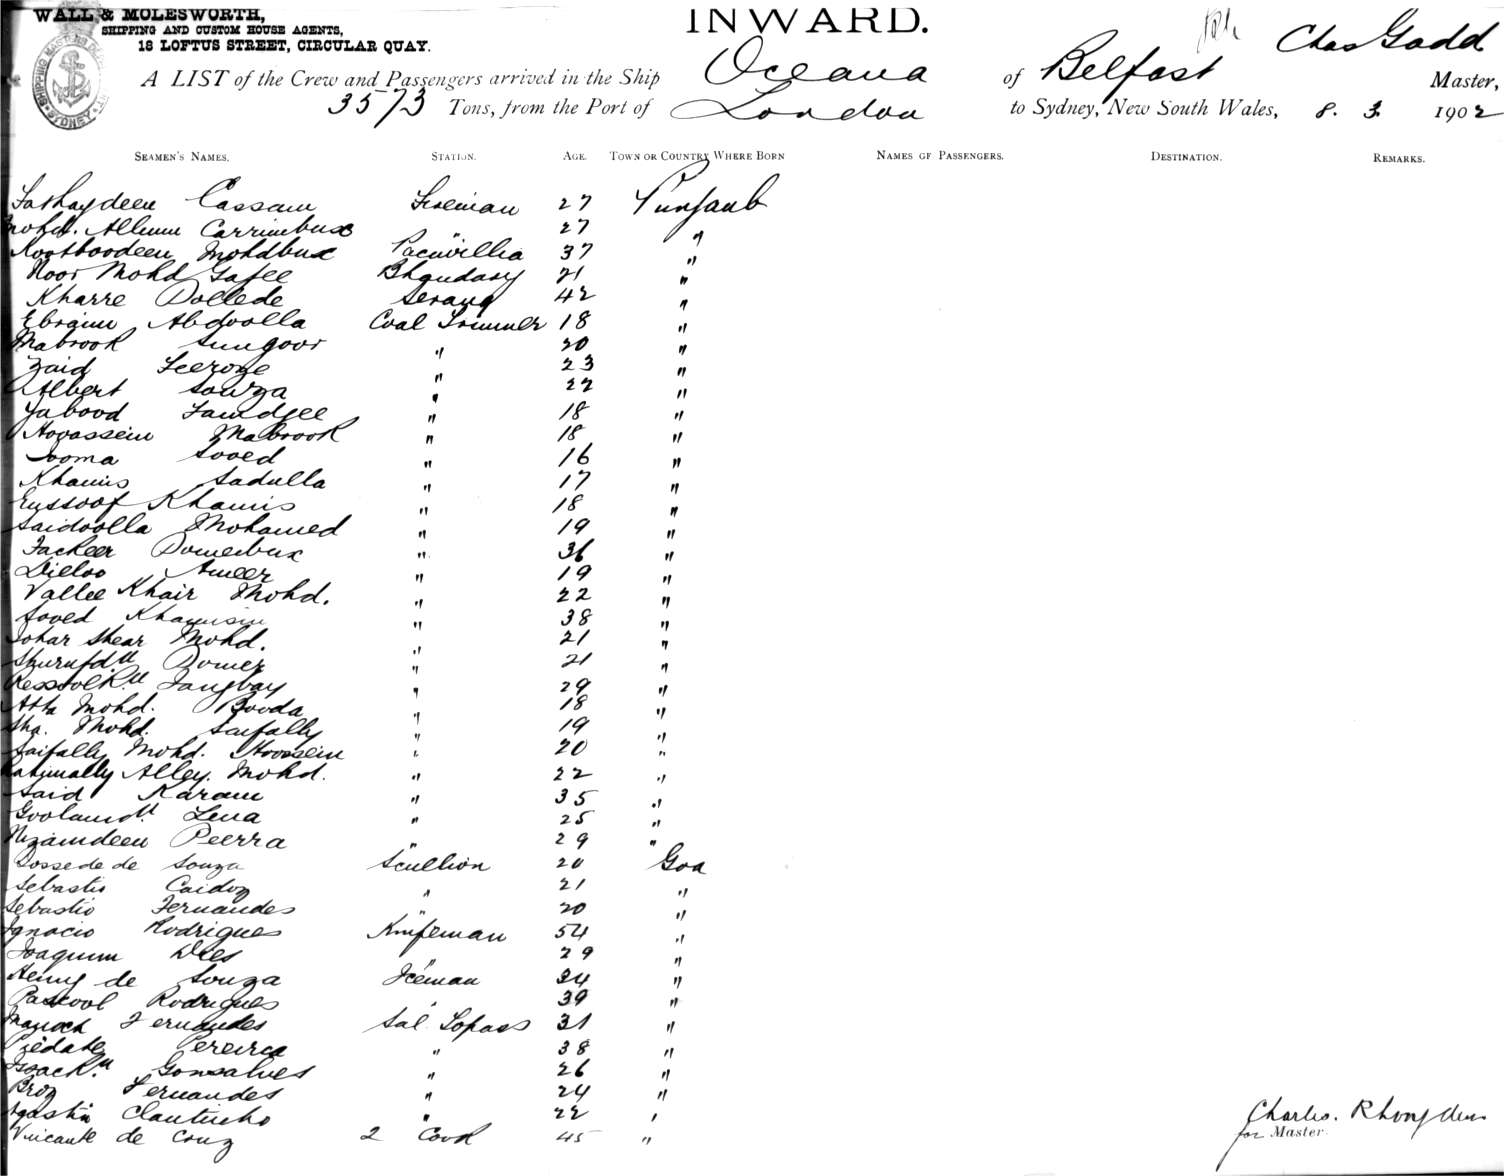 WALL & MOLESWORTH,
SHIPPING AND CUSTOM HOUSE AGENTS,
18 LOFTUS STREET, CIRCULAR QUAY.
SHIPPING MASTERS
SYDNEY
INWARD.
A LIST of the Crew and Passengers arrived in the Ship Oceana of Belfast Chas Gadd Master,
3573 Tons, from the Port of London to Sydney, New South Wales, 8. 3. 1902
SEAMEN'S NAMES. STATION. AGE. TOWN OR COUNTRY WHERE BORN NAMES OF PASSENGERS. DESTINATION. REMARKS.
Fathaydeen Cassam Fireman 27 Punjaub
Mohd. Allum Carrimbux " 27 "
Kootboodeen Mohdbux Pacwillia 37 "
Noor Mohd Gafee Bhandary 21 "
Kharre Dollede Serang 42 "
Ebraim Abdoolla Coal Trimmer 18 "
Mabrook Sungoor " 20 "
Zaid Feeroze " 23 "
Albert Souza " 22 "
Yabood Jamdjee " 18 "
Hoosssein Mabrook " 18 "
Jooma Sooed " 16 "
Khamis Sadulla " 17 "
Eussoof Khamis " 18 "
Saidoolla Mohamed " 19 "
Fackeer Domerbux " 36 "
Ameer " 19 "
Vallee Khair Mohd. " 22 "
Sooed Khamisin " 38 "
Johar Shear Mohd. " 21 "
Domer " 21 "
Jangbay " 29 "
Atta Mohd. Booda " 18 "
Sha. Mohd. Saifally " 19 "
Saifally Mohd. Hoossein " 20 "
Rahimally Alley. Mohd. " 22 "
Said Karam " 35 "
Goolam Lena " 25 "
Nizamdeen Peerra " 29 "
de Souza Scullion 20 Goa
Sebastio Caidoz " 21 "
Sebastio Fernandes " 20 "
Ignacio Rodrigues Knifeman 54 "
Joaquim Dies " 29 "
Henry de Souza Iceman 34 "
Pascool Rodrigues " 39 "
Fernandes Sal. Topass 31 "
Piedate Pereira " 38 "
Gonsalves " 26 "
Broz Fernandes " 24 "
Agastin " 22 "
Vincante de Couz 2 Cook 45 "
Charles.
for Master.